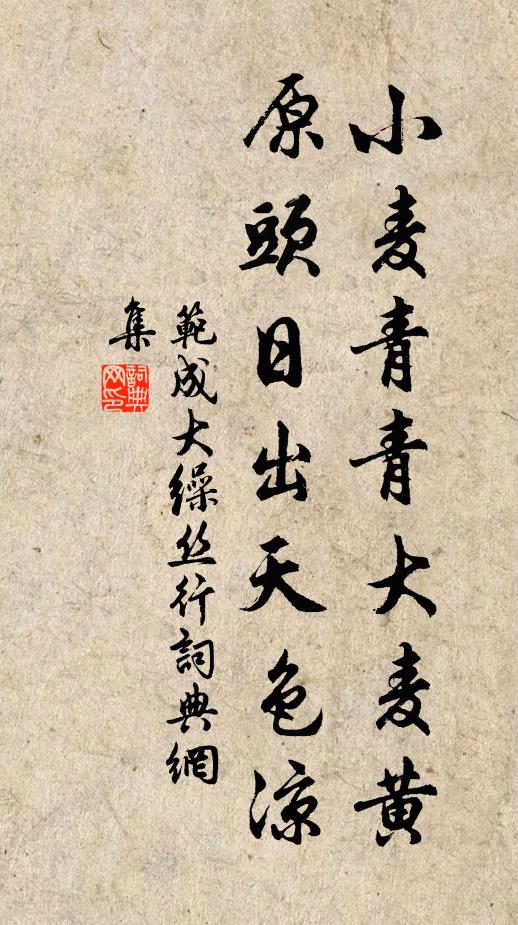 小麦青青大麦黄
原頭日出天色涼
範成大繰丝行詞典網
集
詞典
网印